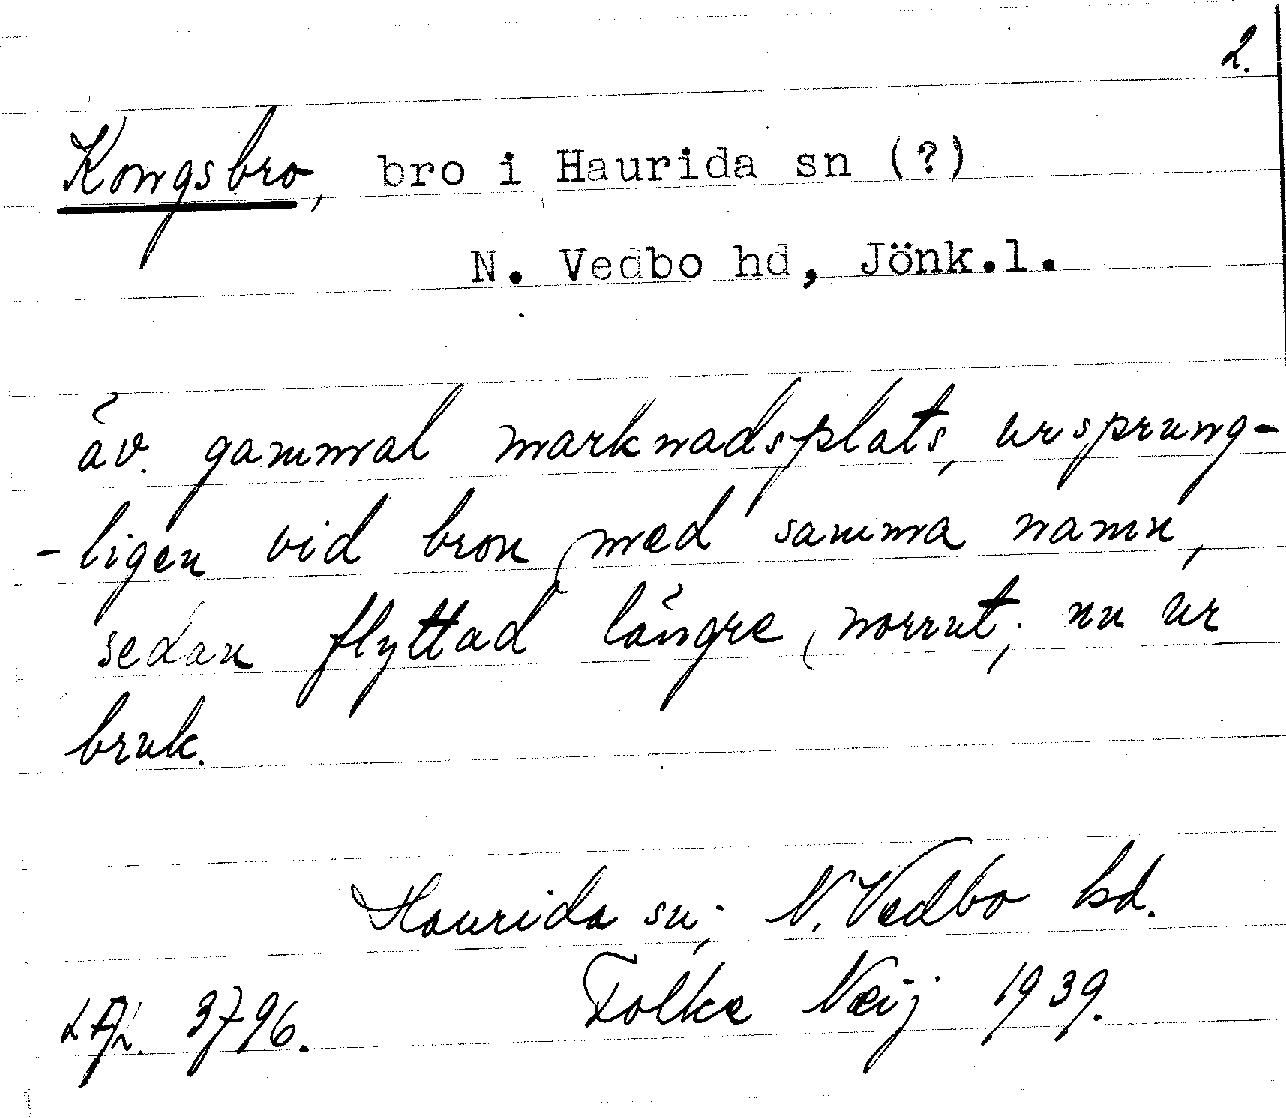 2.
Kongsbro, bro i Haurida sn (?)
N. Vedbo hd, Jönk.l.
äv. gammal marknadsplats, ursprung-
-ligen vid bron med samma namn,
sedan flyttad längre norrut; nu ur
bruk.
Haurida sn; N. Vedbo hd.
3796. Folke Neij 1939.